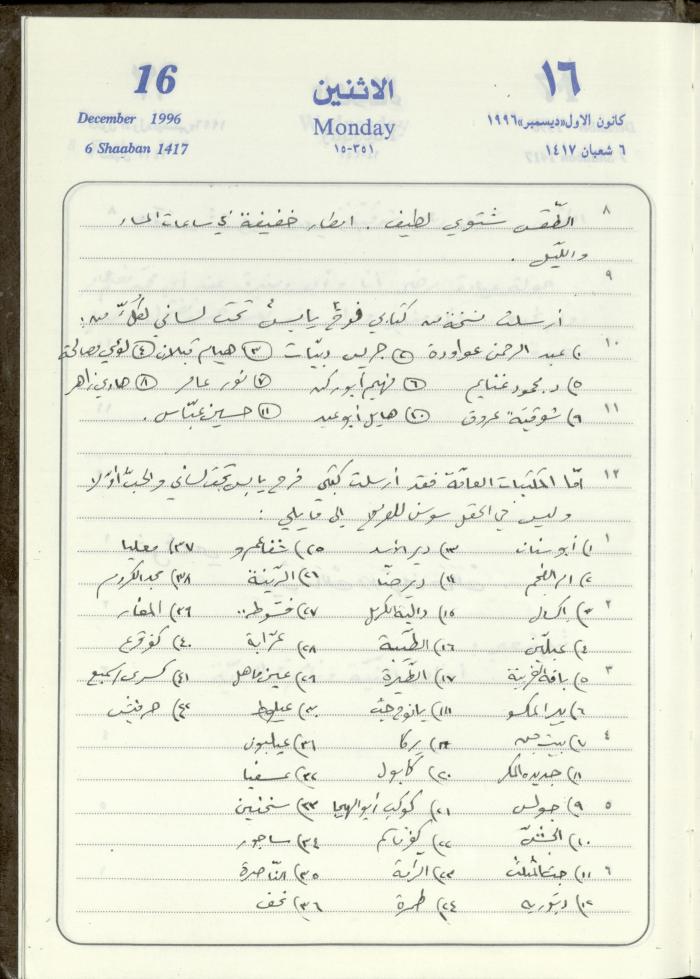 16 الاثنين ١٦
December 1996 Monday كانون الاول «ديسمبر» ١٩٩٦
6 Shaaban 1417 ١٥-٣٥١ ٦ شعبان ١٤١٧
٨ الطّقس شتوي لطيف. امطار خفيفة في ساعات المساء
والليّل.
٩
أرسلت نسخة من كتابي فرح يابس تحت لساني لكلٍّ من:
١٠ ١) عبد الرحمن عواودة ٢) جريس دبيّات ٣) هيام قبلان ٤) لؤي مصالحة
٥) د. محمود غنايم ٦) فهيم أبو ركن ٧) نور عامر ٨) هادي زاهر
١١ ٩) شوقيّة عروق ١٠) هايل أبو عبيد ١١) حسين عبّاس.
١٢ أمّا المكتبات العامّة فقد أرسلت كتبي فرح يابس تحت لساني والحبّ أوّلا
وليس في الحقل سوسن للفرح إلى ما يلي:
١ ١) أبو سنان ١٣) دير الأسد ٢٥) شفاعمرو ٣٧) معليا
٢) ام الفحم ١٤) دير حنّا ٢٦) الرّينة ٣٨) مجد الكروم
٢ ٣) إكسال ١٥) دالية الكرمل ٢٧) فسّوطة ٣٩) المغار
٤) عبلّين ١٦) الطّيبة ٢٨) عرّابة ٤٠) كفر قرع
٣ ٥) باقة الغربيّة ١٧) الطّيرة ٢٩) عين ماهل ٤١) كسرى سميع
٦) بير المكسور ١٨) يانوح جت ٣٠) عيلوط ٤٢) حرفيش
٤ ٧) بيت جن ١٩) يركا ٣١) عيلبون
٨) جديدة المكر ٢٠) كابول ٣٢) عسفيا
٥ ٩) جولس ٢١) كوكب أبو الهيجا ٣٣) سخنين
١٠) الجشّ ٢٢) كفر ياسيف ٣٤) ساجور
٦ ١١) جت المثلث ٢٣) الرّامة ٣٥) النّاصرة
١٢) دبّورية ٢٤) طمرة ٣٦) نحف